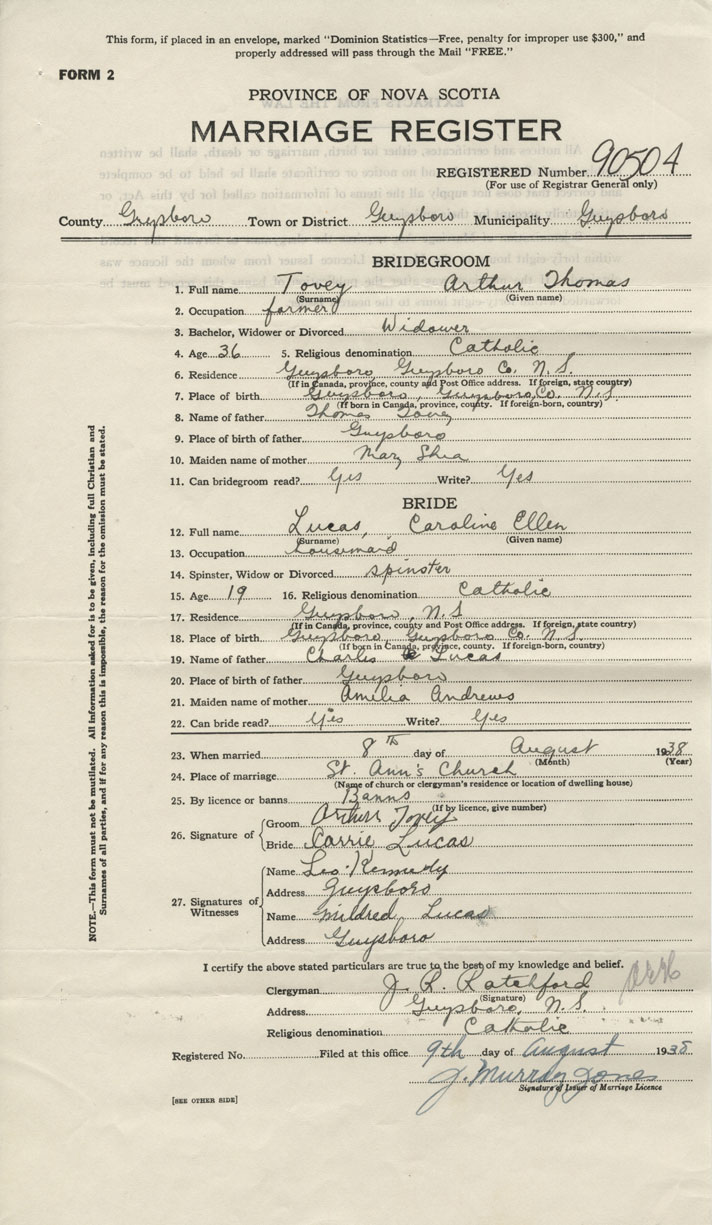 This form, if placed in an envelope, marked "Dominion Statistics—Free, penalty for improper use $300," and
properly addressed will pass through the Mail "FREE."
FORM 2
PROVINCE OF NOVA SCOTIA
MARRIAGE REGISTER
REGISTERED Number 90504
(For use of Registrar General only)
County Guysboro Town or District Guysboro Municipality Guysboro
BRIDEGROOM
1. Full name Tovey Arthur Thomas
(Surname) (Given name)
2. Occupation farmer
3. Bachelor, Widower or Divorced Widower
4. Age 36 5. Religious denomination Catholic
6. Residence Guysboro Guysboro Co. N.S.
(If in Canada, province, county and Post Office address. If foreign, state country)
7. Place of birth Guysboro, Guysboro Co. N.S.
(If born in Canada, province, county. If foreign-born, country)
8. Name of father Thomas Tovey
9. Place of birth of father Guysboro
10. Maiden name of mother Mary Shea
11. Can bridegroom read? Yes Write? Yes
BRIDE
12. Full name Lucas, Caroline Ellen
(Surname) (Given name)
13. Occupation housemaid
14. Spinster, Widow or Divorced spinster
15. Age 19 16. Religious denomination Catholic
17. Residence Guysboro, N.S
(If in Canada, province, county and Post Office address. If foreign, state country)
18. Place of birth Guysboro Guysboro Co. N.S.
(If born in Canada, province, county. If foreign-born, country)
19. Name of father Charles Lucas
20. Place of birth of father Guysboro
21. Maiden name of mother Amelia Andrews
22. Can bride read? Yes Write? Yes
23. When married 8th day of August 1938
(Month) (Year)
24. Place of marriage St. Ann's Church
(Name of church or clergyman's residence or location of dwelling house)
25. By licence or banns Banns
(If by licence, give number)
26. Signature of Groom Arthur Tovey
Bride Carrie Lucas
27. Signatures of Witnesses
Name Leo Kennedy
Address Guysboro
Name Mildred Lucas
Address Guysboro
I certify the above stated particulars are true to the best of my knowledge and belief.
Clergyman J. R. Ratchford
(Signature)
Address Guysboro, N.S.
Religious denomination Catholic
Registered No. Filed at this office 9th day of August 1938
J. Murray Jones
Signature of Issuer of Marriage Licence
[SEE OTHER SIDE]
NOTE.—This form must not be mutilated. All information asked for is to be given, including full Christian and
Surnames of all parties, and if for any reason this is impossible, the reason for the omission must be stated.